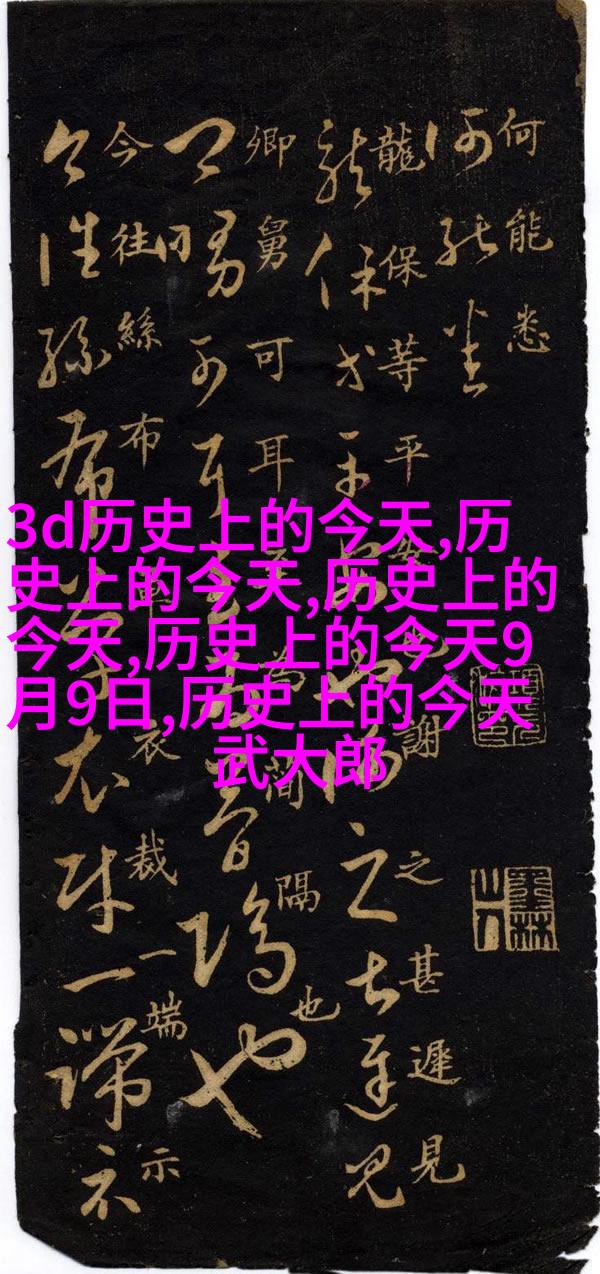 何能悉
龍保等平安也謝之甚遲見
卿舅可耳至為簡隔也
今往絲布單衣裁一端示
3d历史上的今天,历
史上的今天,历史上的
今天,历史上的今天9
月9日,历史上的今天
武大郎